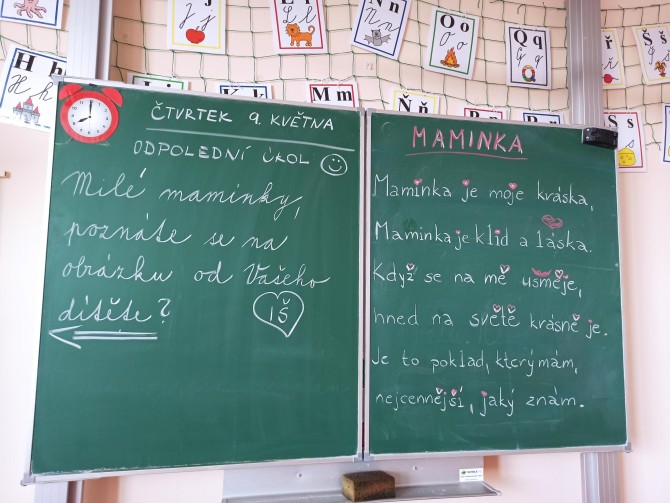 H h
J j
L l
N n
O o
Q q
Š š
K k
M m
Ň ň
ČTVRTEK 9. KVĚTNA
ODPOLEDNÍ ÚKOL
Milé maminky,
poznáte se na
obrázku od Vašeho
dítěte?
IŠ
MAMINKA
Maminka je moje kráska,
Maminka je klid a láska.
Když se na mě usměje,
hned na světě krásně je.
Je to poklad, který mám,
nejcennější, jaký znám.